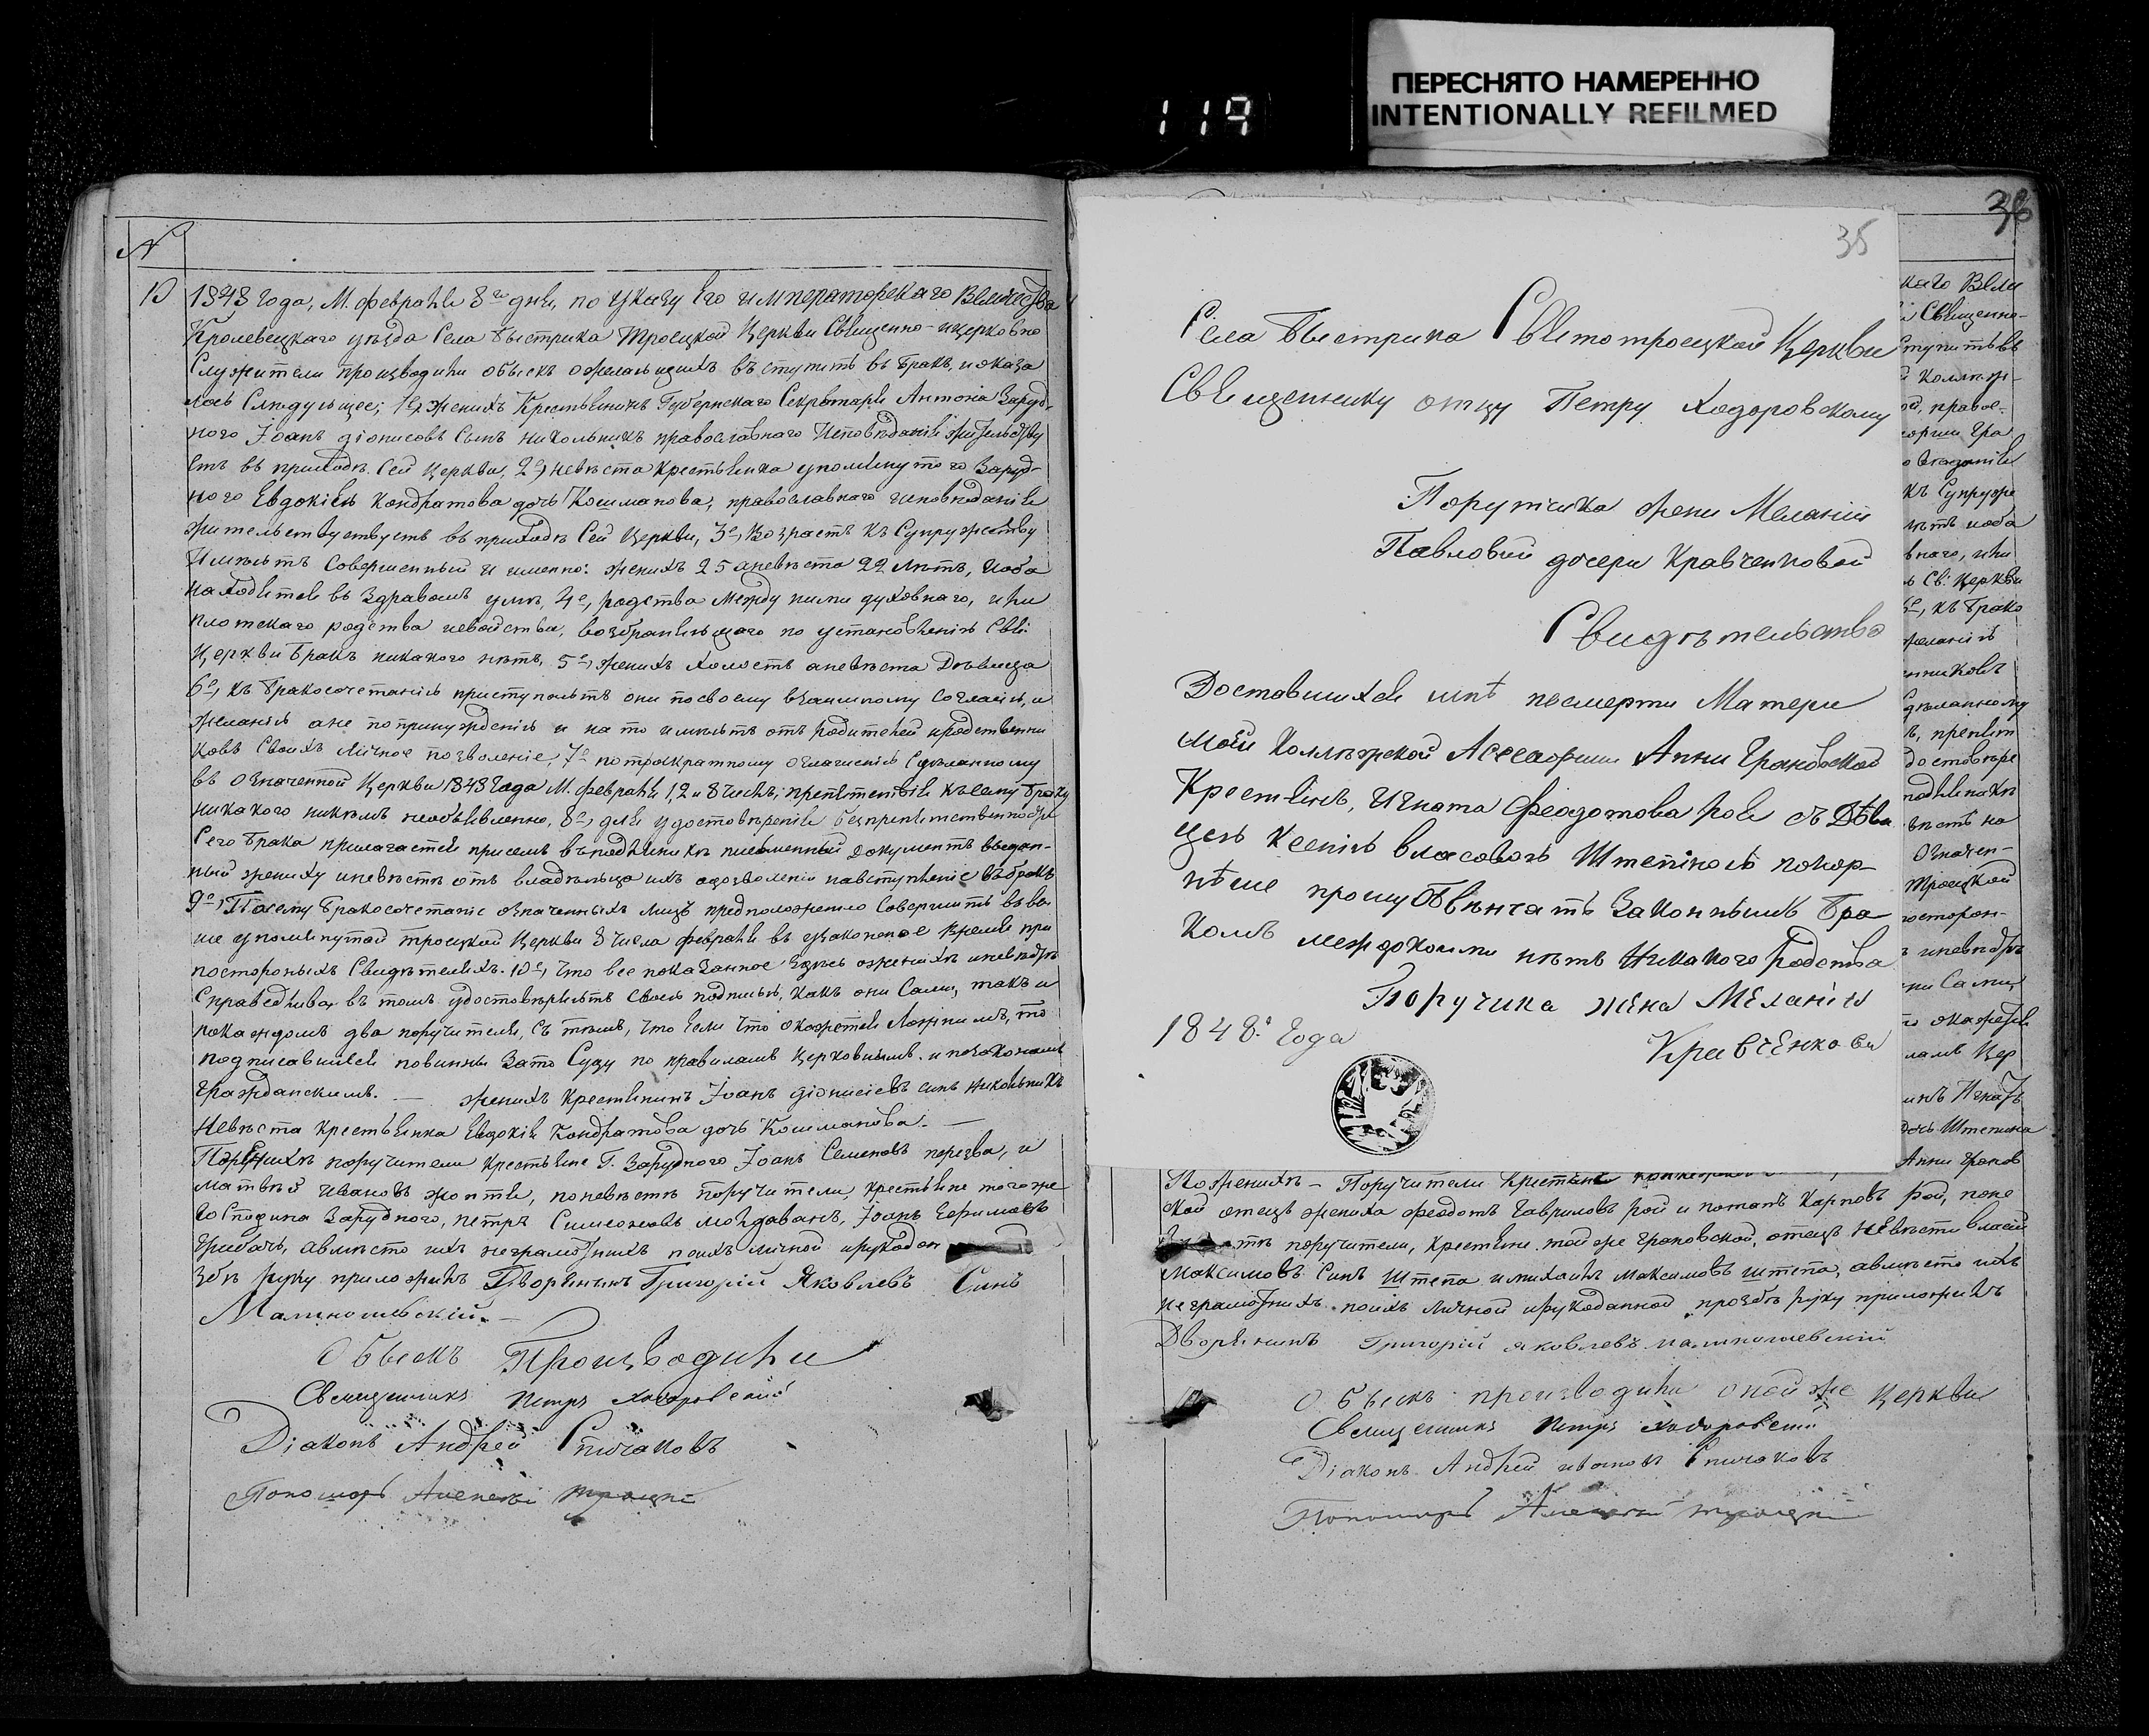 ПЕРЕСНЯТО НАМЕРЕННО
INTENTIONALLY REFILMED
119
N
10
1848 Года, М. февраля 8го дня, по Указу Его императорскаго Величества
Кролевецкаго уѣзда Села Быстрика Троецкой Церкви Священно-ицерковно
Служители производили обыскъ ожелающихъ вступить въ Бракъ, иоказа
лось Слѣдующее; 1е, женихъ Крестьянинъ Губернскаго Секрѣтаря Антона Заруд-
ного Іоанъ діонисовъ Сынъ никольникъ православнаго Исповѣданія жительству
етъ въ приходѣ Сей Церкви, 2е, невѣста крестьянка упомянутого Заруд-
ного Евдокія Кондратова дочь Кошманова, православнаго исповѣданія
жительствуетъ въ приходѣ Сей Церкви, 3е, Возрастъ къ Супружеству
Имѣютъ Совершенный и именно: женихъ 25 аневѣста 22 лѣтъ, иоба
находятся въ Здравомъ умѣ, 4е, родства между ними духовнаго, или
плотскаго родства исвойства, возбраняющаго по установленію Свя:
Церкви Бракъ никакого нѣтъ, 5е, женихъ холостъ аневѣста Дѣвица
6е, къ Бракосочетанію приступаютъ они посвоему взаимному Согласію, и
желанію ане попринужденію и на то имѣютъ отъ Родителей иродственни
ковъ Своихъ личное позволеніе, 7е потроекратному оглашенію Сдѣланному
въ означенной Церкви 1848 Года М. февраля 1, 2 и 8 числъ; препятствія къ сему браку
никакого никѣмъ необъявленно, 8е, для удостовѣренія безпрепятственности
Сего Брака прилагается присемъ въподлинникѣ писменный документъ выдан-
ный жениху иневѣстѣ отъ владѣльца ихъ одозволеніи навступленіе въ бракъ
9е, Посему Бракосочетаніе означенныхъ лицъ предположенно Совершить въ вы
ше упомянутой троецкой Церкви 8 числа февраля въ узаконеное время при
постороныхъ Свидѣтеляхъ. 10е, что все показанное Здѣсь оженихѣ иневѣстѣ
Справедливо, въ томъ удостовѣряютъ Своею подписью, какъ они Сами, такъ и
покаждомъ два поручителя, съ тѣмъ, что Если что окажется Ложнимъ, то
подписавшіеся повинны Зато Суду по правиламъ Церковнымъ. и позаконамъ
Гражданскимъ. — женихъ Крестянинъ Іоанъ діонисіевъ синъ никольникъ
Невѣста крестьянка Евдокія Кондратова дочь Кошманова. —
Поженихѣ поручители крестьяне Г. Зарудного Іоанъ Семеновъ перезва, и
матвѣй Ивановъ жоптя, поневѣстѣ поручители, крестьяне тогоже
Господина Зарудного, петръ Симеоновъ молдаванъ, Іоанъ Ефимовъ
Грибачъ, авмѣсто ихъ неграмотнихъ поихъ личной ирукодан
Збѣ руку приложилъ Дворянинъ Григорій Яковлевъ Синъ
Малиношевскій. —
Обыскъ Производили
Священникъ Петръ Ходоровскій
Діаконъ Андрей Спичаковъ
Пономарь Алексей Троецкі
36
35
Села Быстрика Святотроецкой Церкви
Священнику отцу Петру Ходоровскому
Поручика жени Меланіи
Павловой дочери Кравченковой
Свидѣтельство
Доставшихся мнѣ посмерти Матери
моей Коллѣжской Ассесорши Анни Грановской
Крестянъ, Игната Феодотова Роя съ Дѣви
цею Ксенію власовою Штепіною покор-
нѣше прошу Обвѣнчать Законнымъ Бра
комъ междокоими нѣтъ Никакого Родства
Поручика жена Меланія
1848. Года
Кравченкова
каго Вели
Священно-
ступить въ
Коллѣж-
о Сагланія
къ Супруже
внаго, или
Св: Церкви
къ Брако
желанію
нниковъ
Сдѣланному
препят
достовѣре
Означен-
Троецкой
посторон-
иневѣстѣ
они Сами
окажется
ламъ Цер
инъ Игнатъ
дочь Штепина
Анни Гранов
Поженихѣ — Поручители Крестяне
ской отецъ жениха Феодотъ Гавриловъ Рой и потапъ Карповъ Рой, поне
тѣ поручители, крестяне той же грановской, отецъ невѣсти власій
Максимовъ Синъ Штепа имихаилъ Максимовъ штепа, авмѣсто ихъ
Неграмотнихъ поихъ личной ирукоданной прозбѣ руку приложилъ
Дворянинъ Григорій яковлевъ малиношевскій
Обыскъ производили оной же Церкви
Священникъ Петръ Ходоровскій
Діаконъ Андрей ивановъ Спичаковъ
Пономарь Алексей троецкі